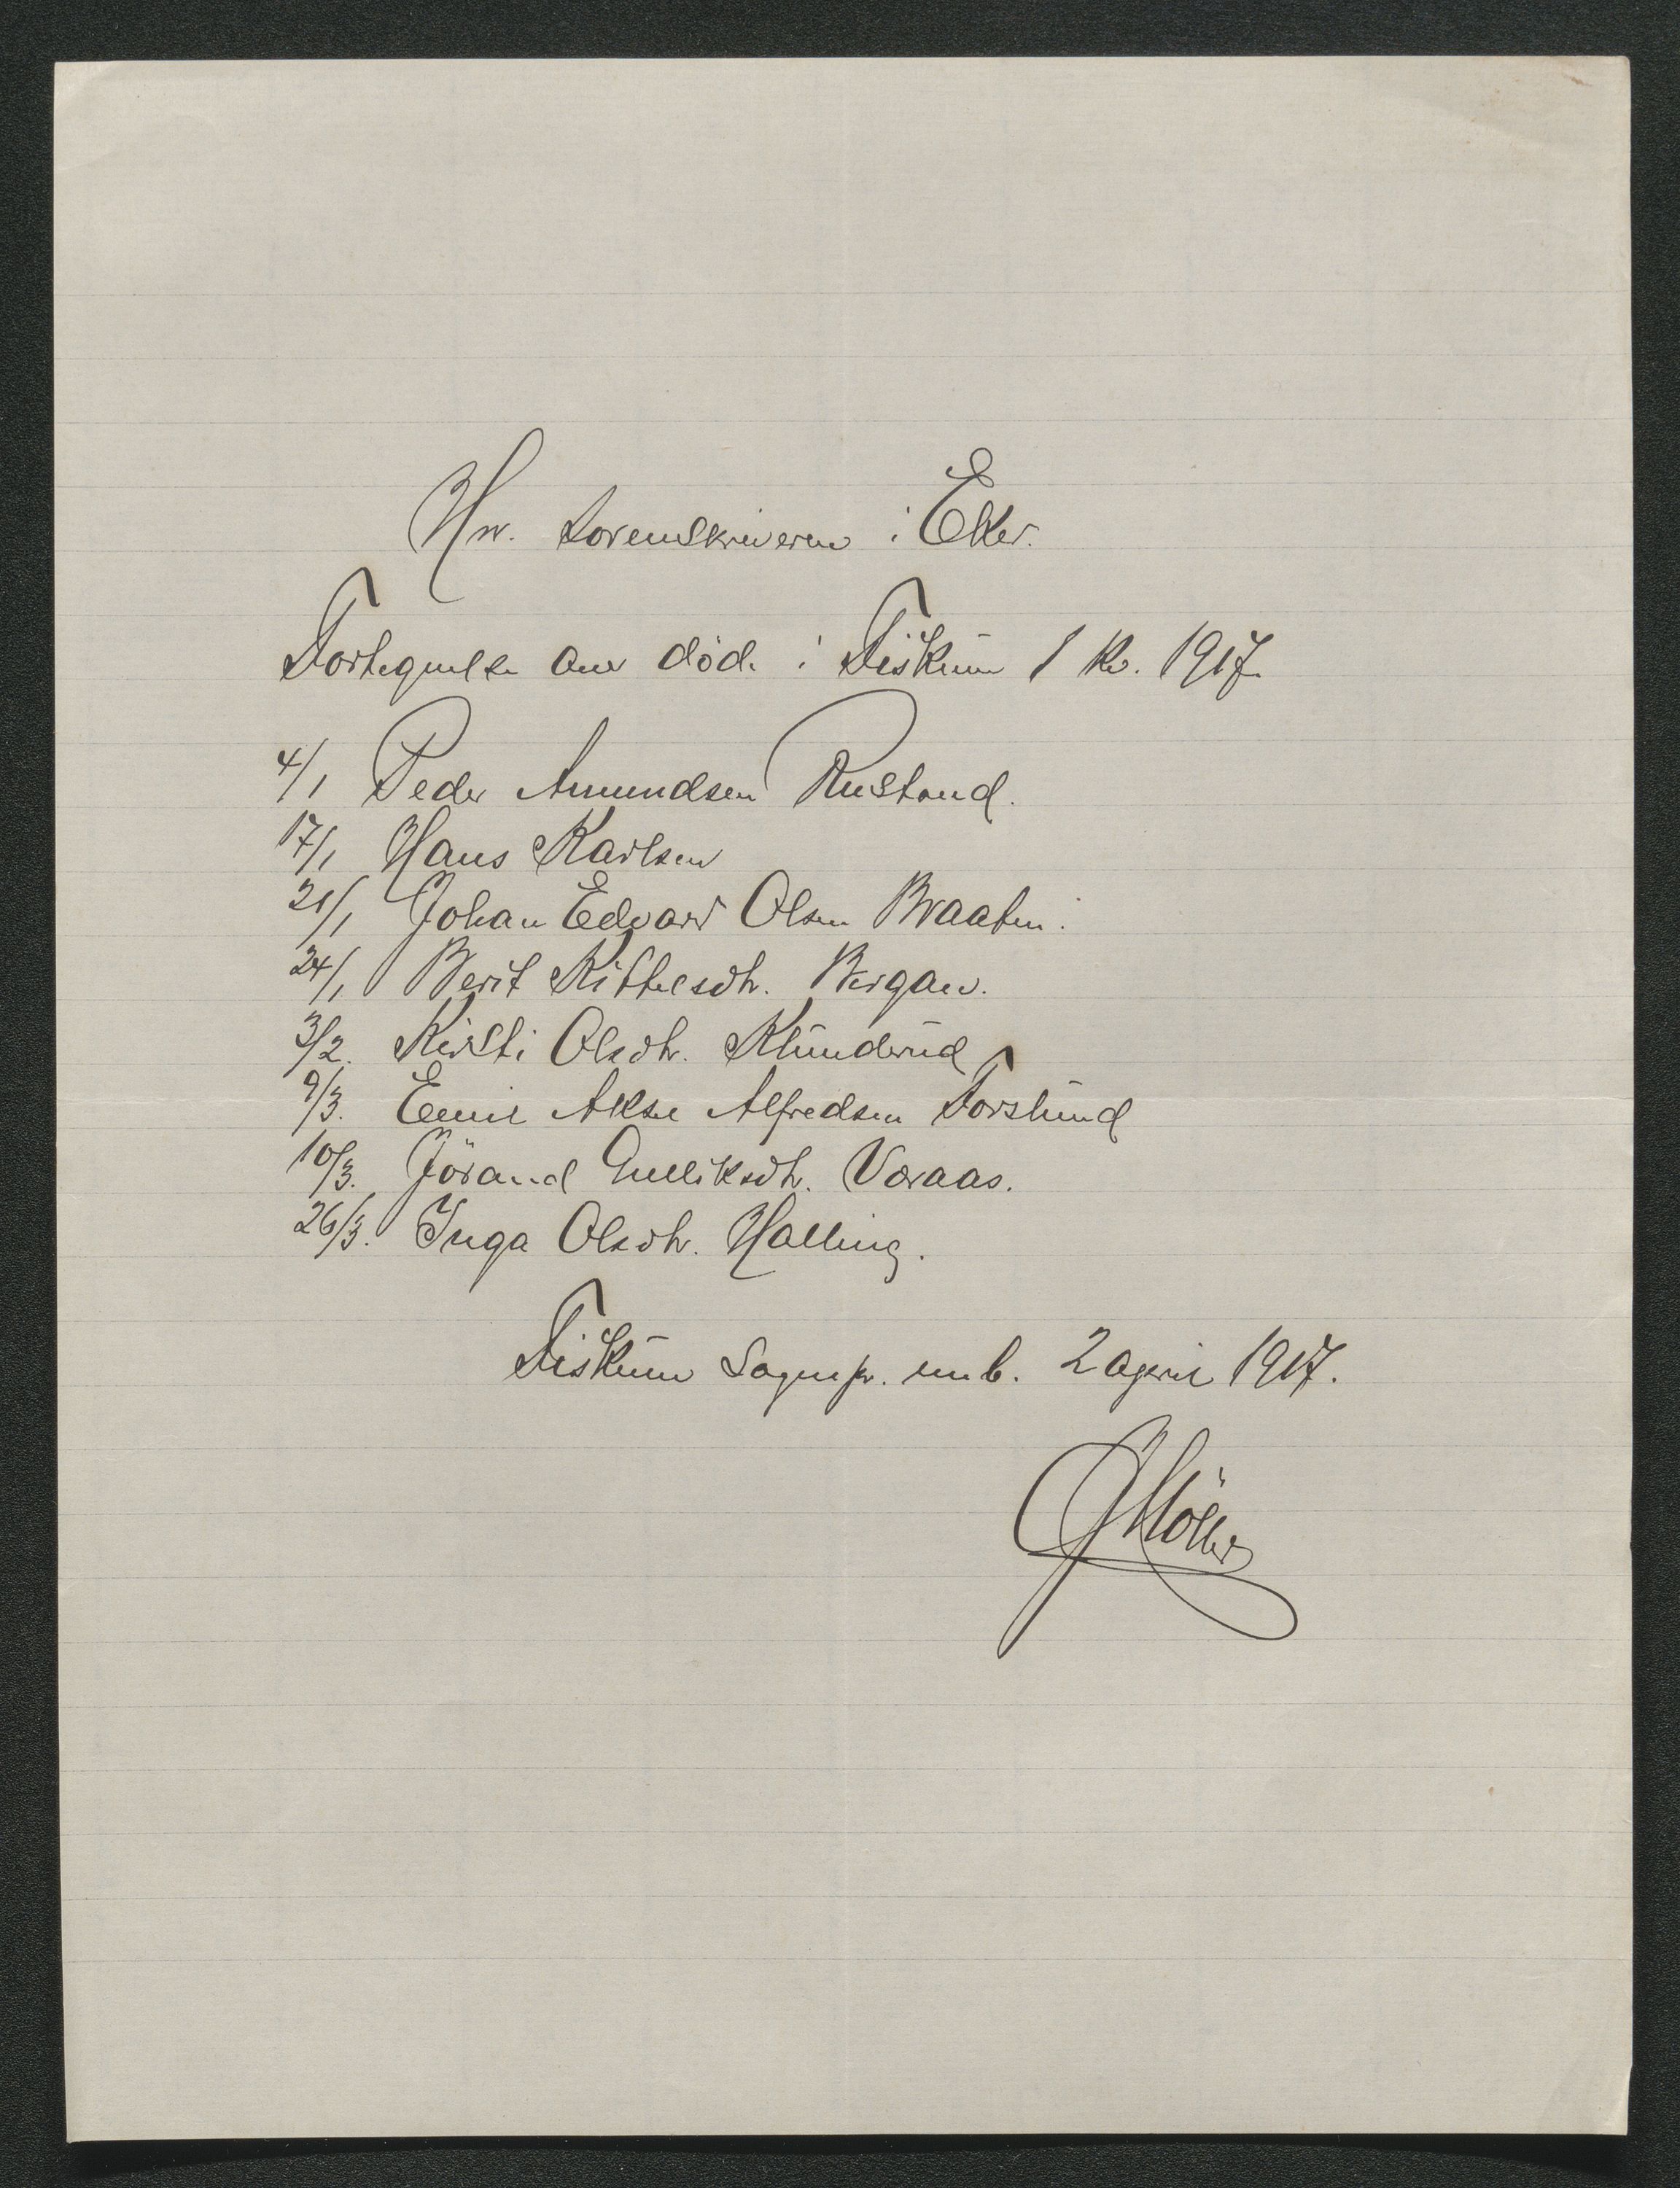 Hr. Sorenskriveren i Eker.
Fortegnelse over död. i Fiskum 1 Kv. 1917.
4/1 Peder Amundsen Rustand.
17/1 Hans Karlsen
21/1 Johan Edvard Olsen Braaten.
24/1 Berit Kittelsdtr. Bergan.
3/2. Kirsti Olsdtr. Klunderud
9/3. Emil Aksel Alfredsen Forslund
10/3. Jörand Gulliksdtr. Varaas.
26/3. Inga Olsdtr. Halling.
Fiskum Sognepr. emb. 2 april 1917.
Möller